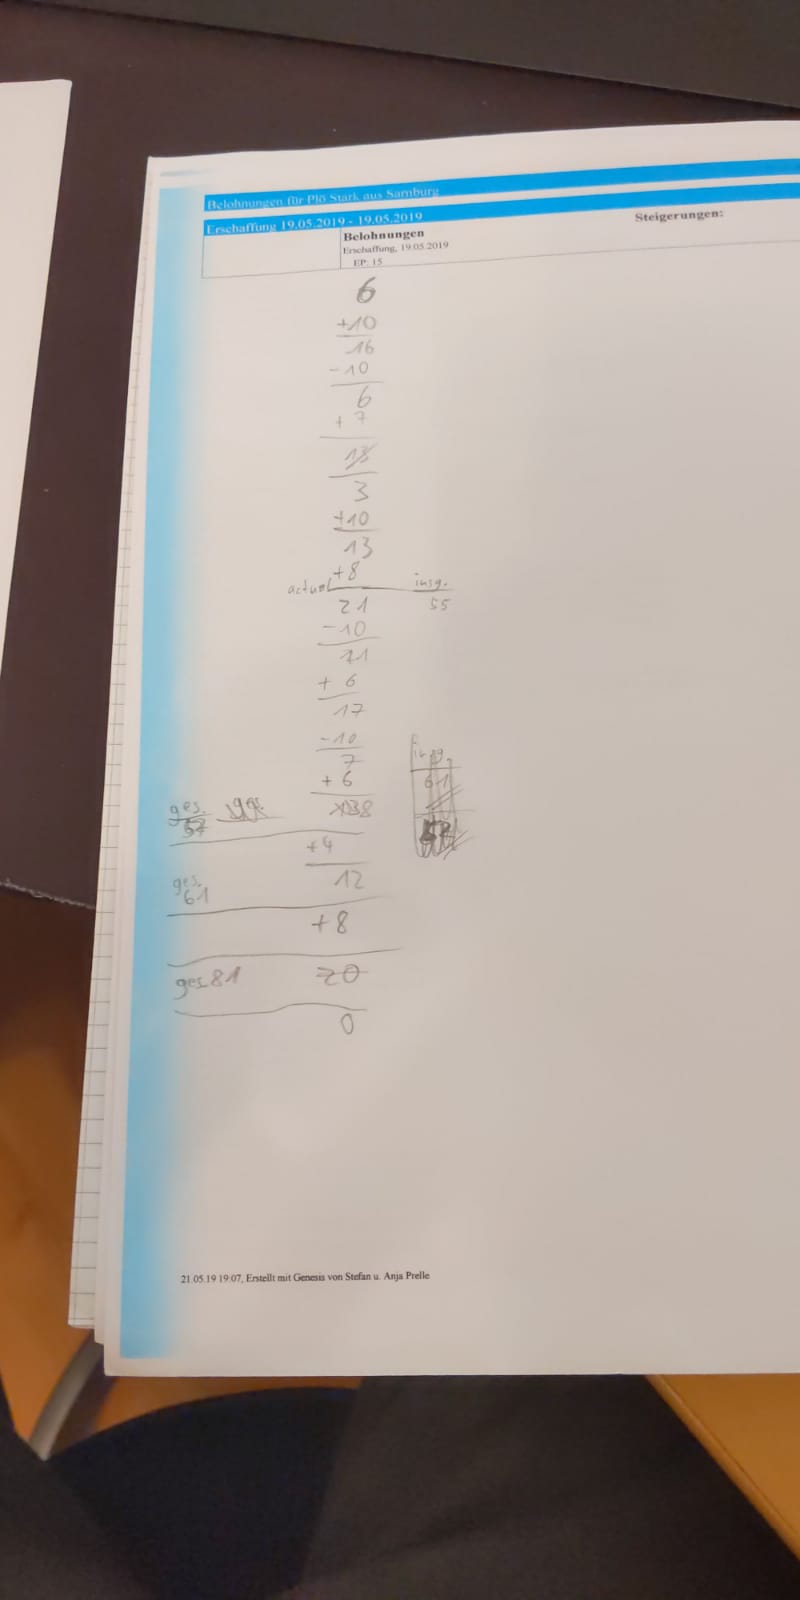 Belohnungen für Plö Stark aus Sarnburg
Erschaffung 19.05.2019 - 19.05.2019
Belohnungen
Steigerungen:
Erschaffung, 19.05.2019
EP: 15
6
+10
16
-10
6
+7
13
3
+10
13
+8
actuel insg.
21 55
-10
11
+ 6
17
-10
7 insg.
+ 6 61
ges. 8
57
+4
ges. 12
61
+8
ges. 81 20
0
21.05.19 19:07, Erstellt mit Genesis von Stefan u. Anja Prelle